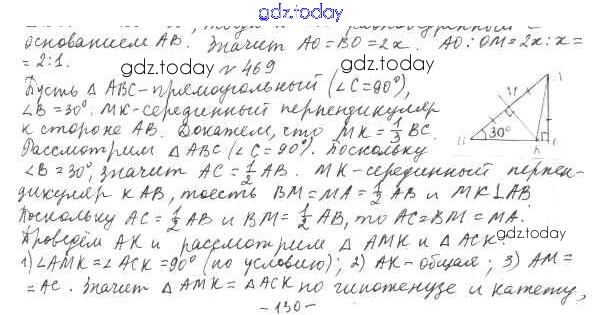 gdz.today
основанием AB. Значит AO=BO=2x. AO:OM=2x:x=
=2:1.
gdz.today
№469
Пусть △ ABC-прямоугольный (∠C=90°),
gdz.today
∠B=30°. MK-серединный перпендикуляр
к стороне AB. Докажем, что MK=1/3 BC.
Рассмотрим △ ABC (∠C=90°). Поскольку
∠B=30°, значит AC=1/2 AB. MK-серединный перпен-
дикуляр к AB, тоесть BM=MA=1/2 AB и MK⊥AB
Поскольку AC=1/2 AB и BM=1/2 AB, то AC=BM=MA.
Проведём AK и рассмотрим △ AMK и △ ACK:
1) ∠AMK=∠ACK=90° (по условию); 2) AK-общая; 3) AM=
=AC. Значит △ AMK=△ACK по гипотенузе и катету,
-130-
30°
gdz.today
gdz.today
gdz.today